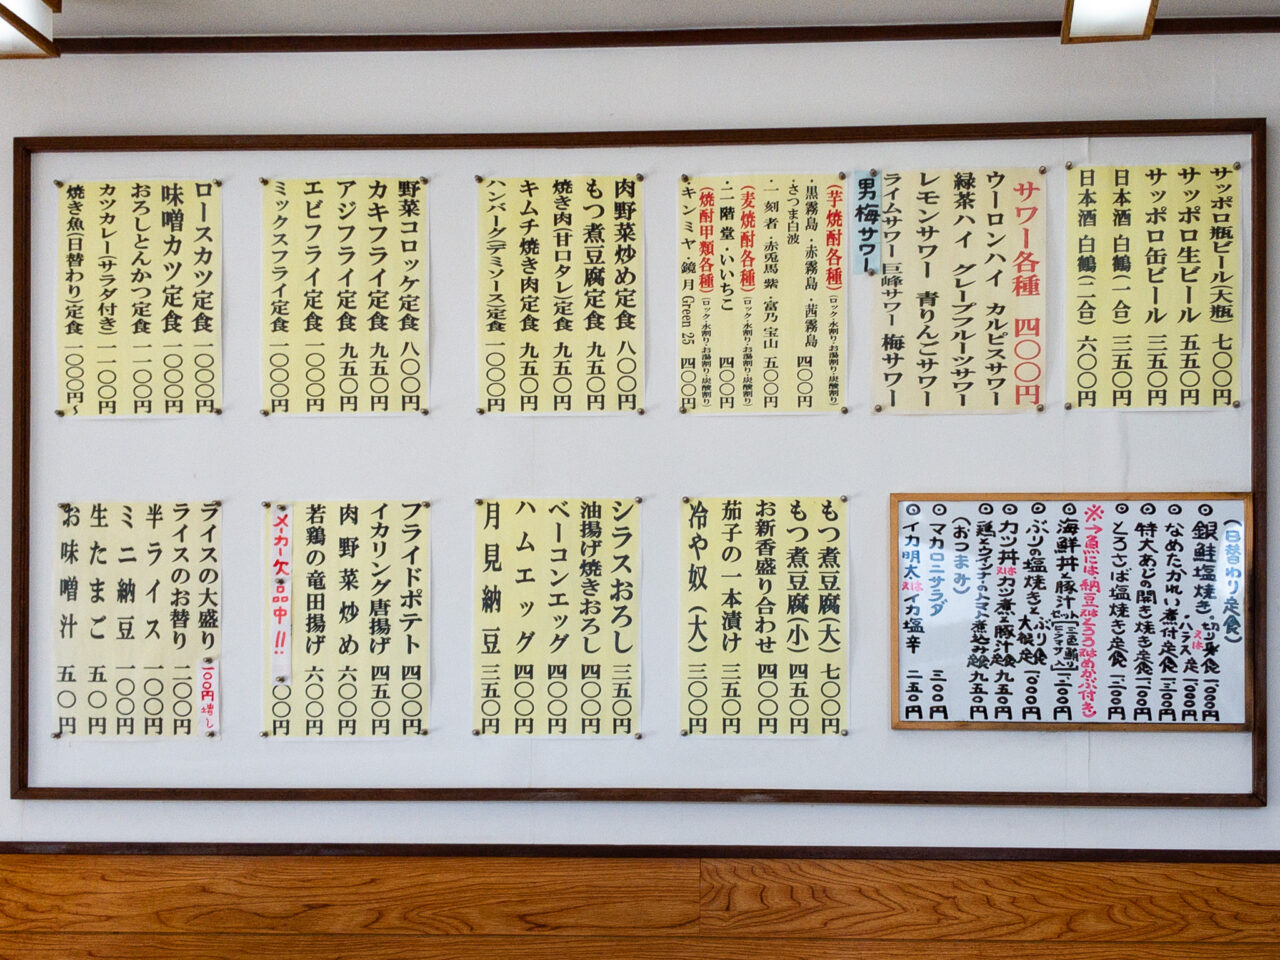 サッポロ瓶ビール(大瓶) 七〇〇円
サッポロ生ビール 五五〇円
サッポロ缶ビール 三五〇円
日本酒 白鶴(一合) 三五〇円
日本酒 白鶴(二合) 六〇〇円
サワー各種 四〇〇円
ウーロンハイ カルピスサワー
緑茶ハイ グレープフルーツサワー
レモンサワー 青りんごサワー
ライムサワー 巨峰サワー 梅サワー
男梅サワー
(芋焼酎各種)(ロック・水割り・お湯割り・炭酸割り)
・黒霧島・赤霧島・茜霧島 四〇〇円
・さつま白波
・一刻者・赤兎馬 紫・富乃宝山 五〇〇円
(麦焼酎各種)(ロック・水割り・お湯割り・炭酸割り)
・二階堂・いいちこ 四〇〇円
(焼酎甲類各種)(ロック・水割り・お湯割り・炭酸割り)
・キンミヤ・鏡月Green 25 四〇〇円
肉野菜炒め定食 八〇〇円
もつ煮豆腐定食 九五〇円
焼き肉(甘口タレ)定食 九五〇円
キムチ焼き肉定食 九五〇円
ハンバーグ(デミソース)定食 一〇〇〇円
野菜コロッケ定食 八〇〇円
カキフライ定食 九五〇円
アジフライ定食 九五〇円
エビフライ定食 一〇〇〇円
ミックスフライ定食 一〇〇〇円
ロースカツ定食 一〇〇〇円
味噌カツ定食 一〇〇〇円
おろしとんかつ定食 一一〇〇円
カツカレー(サラダ付き) 一一〇〇円
焼き魚(日替わり)定食 一〇〇〇円〜
(日替わり定食)
◎銀鮭塩焼き・切り身 又は ハラス 定食 一、一〇〇円
◎なめたかれい煮付定食 一、三〇〇円
◎特大あじの開き焼き定食 一、一〇〇円
◎とろさば塩焼き定食 一、一〇〇円
※→魚には・納豆又はとろろ又はめかぶ付き
◎海鮮丼と豚汁
◎ぶりの塩焼きとぶり大根定食
◎カツ丼 又は カツ煮と豚汁定食 九五〇円
(おつまみ)
◎マカロニサラダ 三〇〇円
◎イカ明太 又は イカ塩辛 二五〇円
もつ煮豆腐(大) 七〇〇円
もつ煮豆腐(小) 四五〇円
お新香盛り合わせ 四〇〇円
茄子の一本漬け 三五〇円
冷や奴(大) 三〇〇円
シラスおろし 三五〇円
油揚げ焼きおろし 四〇〇円
ベーコンエッグ 四〇〇円
ハムエッグ 四〇〇円
月見納豆 三五〇円
フライドポテト 四〇〇円
イカリング唐揚げ 四五〇円
肉野菜炒め 六〇〇円
若鶏の竜田揚げ 六〇〇円
メーカー欠品中!! 〇〇円
ライスの大盛り 一〇〇円増し
ライスのお替り 二〇〇円
半ライス 一〇〇円
ミニ納豆 一〇〇円
生たまご 五〇円
お味噌汁 五〇円